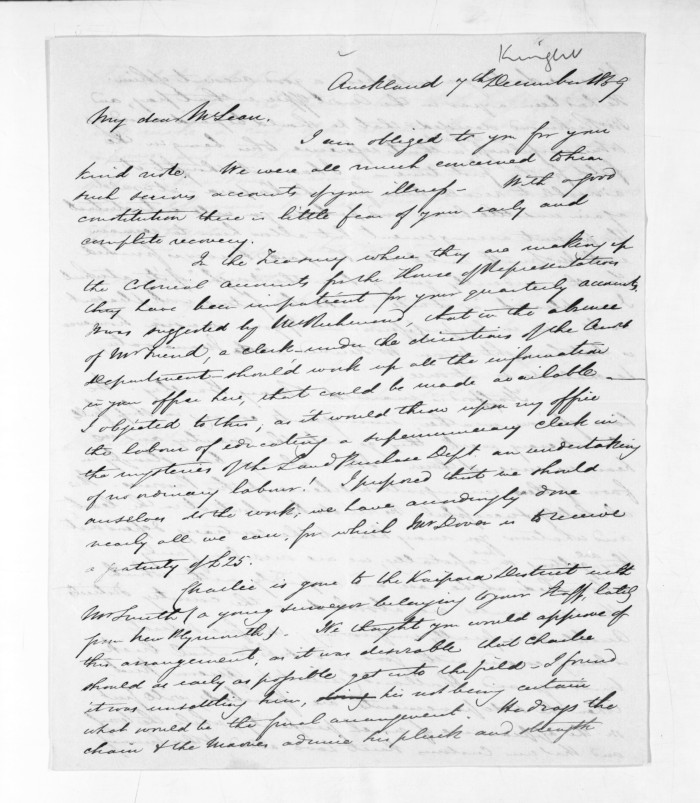 Knight
Auckland 7th December 1859
My dear McLean.
I am obliged to you for your
kind note. We were all much concerned to hear
such serious accounts of your illness – With a good
constitution there is little fear of your early and
complete recovery.
In the Treasury where they are making up
the Colonial accounts for the House of Representatives
they have been impatient for your quarterly accounts.
It was suggested by Mr Richmond, that in the absence
of Mr Friend, a clerk under the directions of the Audit
Department should work up all the information
in your office here, that could be made available –
I objected to this, as it would throw upon my office
the labour of educating a supernumerary clerk in
the mysteries of the Land Purchase Dept an undertaking
of no ordinary labour! I proposed that we should
ourselves do the work; we have accordingly done
nearly all we can, for which Mr Dover is to receive
a gratuity of £25.
Charlie is gone to the Kaipara District with
Mr Smith (a young surveyor belonging to your Staff, lately
from New Plymouth). We thought you would approve of
this arrangement, as it was desirable that Charlie
should as early as possible get into the field – I found
it was unsettling him, his not being certain
what would be the final arrangement. He drags the
chain & the Maories admire his pluck and strength